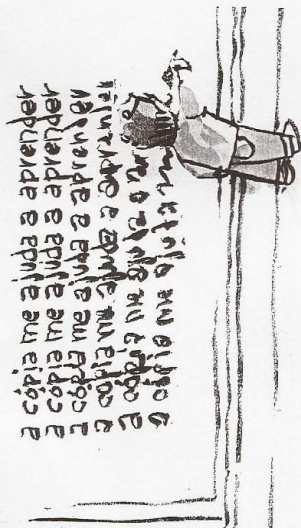 a cópia me ajuda a aprender
a cópia me ajuda a aprender
a cópia me ajuda a aprendeu
a copia me ajuda a
a copia me ajuta
a copia me ajuta